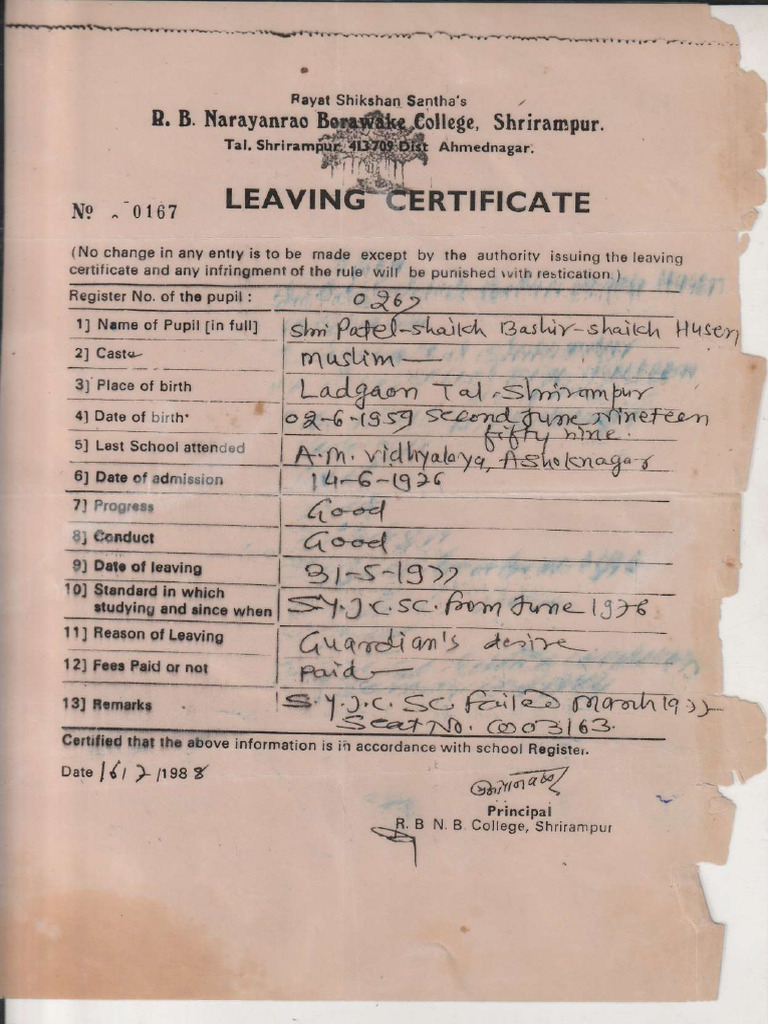 Rayat Shikshan Santha's
R. B. Narayanrao Borawake College, Shrirampur.
Tal. Shrirampur. 413709 Dist Ahmednagar.
LEAVING CERTIFICATE
No 0167
(No change in any entry is to be made except by the authority issuing the leaving
certificate and any infringment of the rule will be punished with restication.)
Register No. of the pupil : 0267
1] Name of Pupil [in full] Shri Patel-Shaikh Bashir-Shaikh Husen
2] Caste Muslim
3] Place of birth Ladgaon Tal. Shrirampur
4] Date of birth 02-6-1959 Second June Nineteen
fifty nine.
5] Last School attended A.M. Vidhyalaya, Ashoknagar
6] Date of admission 14-6-1976
7] Progress Good
8] Conduct Good
9] Date of leaving 31-5-1977
10] Standard in which
studying and since when S.Y.J.C.SC. from June 1976
11] Reason of Leaving Guardian's desire
12] Fees Paid or not Paid
13] Remarks S.Y.J.C. SC Failed March 1977
Seat No. 003163.
Certified that the above information is in accordance with school Register.
Date 16/7/1988
Principal
R. B N. B. College, Shrirampur